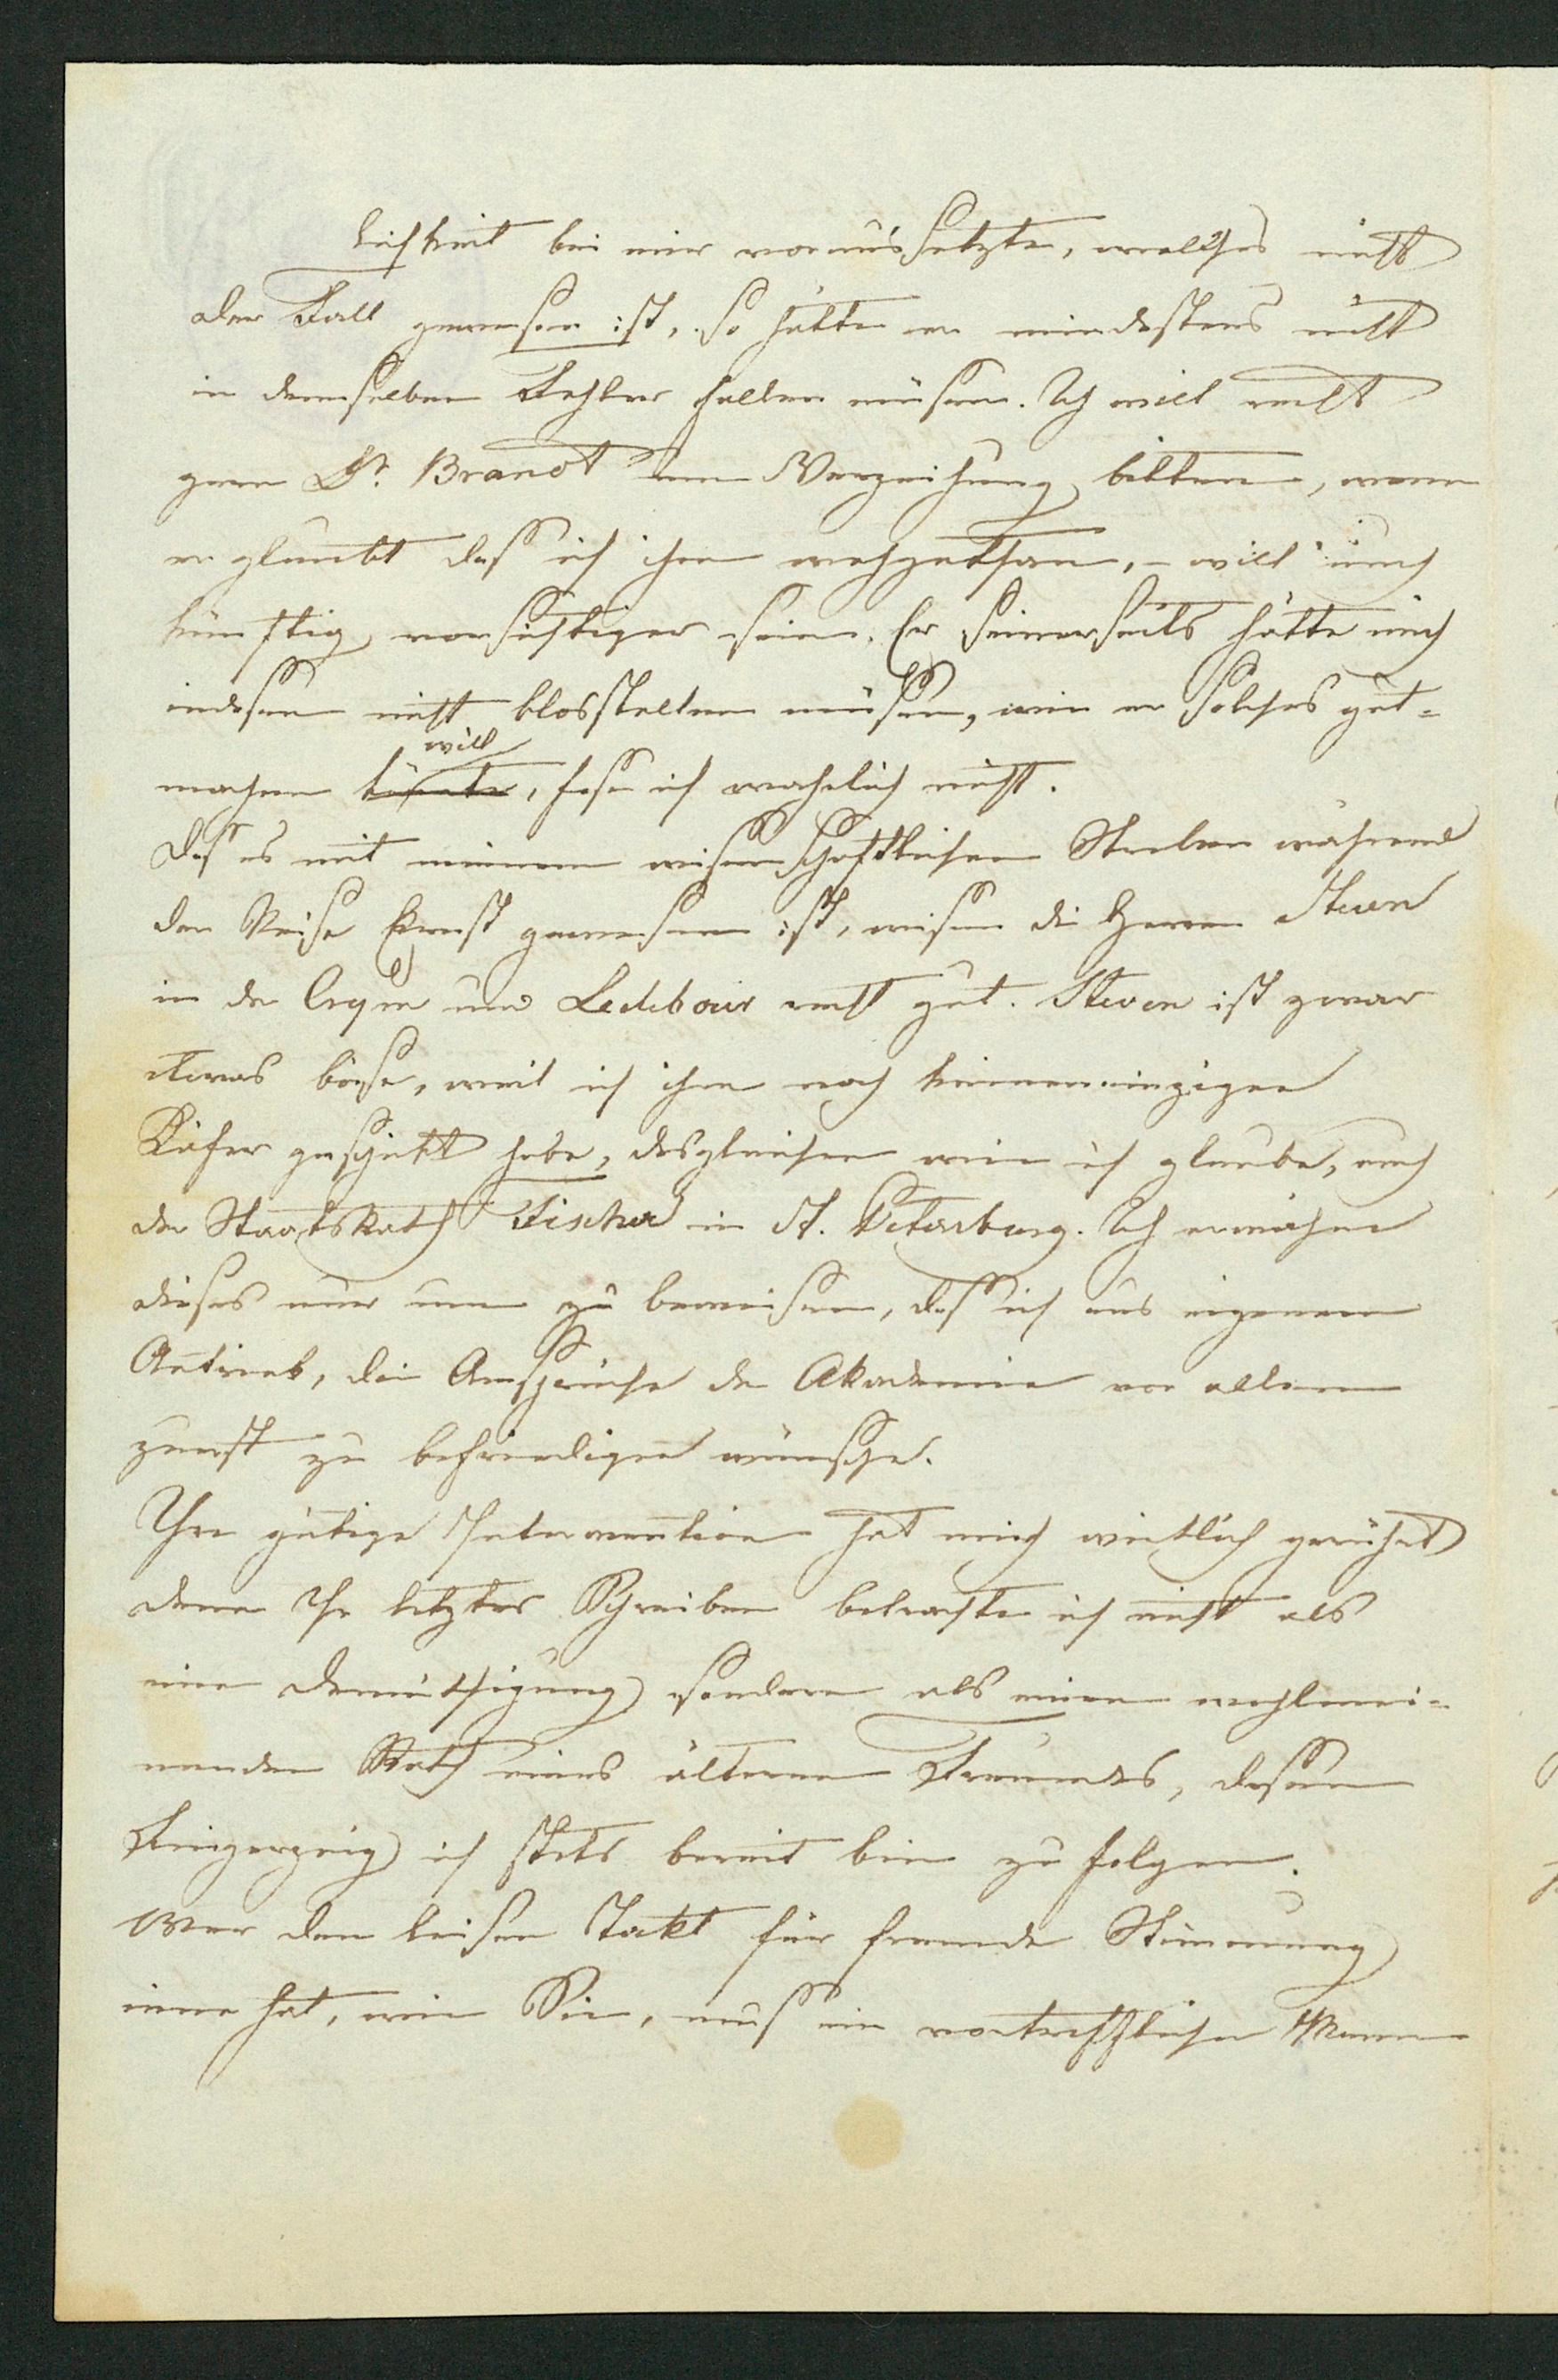 lichkeit bei mir voraussetzte, welches nicht
der Fall gewesen ist, so hätte er mindestens nicht
in denselben Fehler fallen müssen. Ich will recht
gern Dr. Brandt um Verzeihung bitten, wenn
er glaubt dass ich ihm wehgethan, – will auch
künftig vorsichtiger sein. Er seinerseits hätte mich
indessen nicht blosstellen müssen, wie er solches gut-
machen will, sehe ich wahrlich nicht.
Dass es mit meinem wissenschaftlichen Streben während
der Reise Ernst gewesen ist, wissen die Herren Steven
in der Crym und Ledebour recht gut. Steven ist zwar
etwas böse, weil ich ihm noch keinen einzigen
Käfer geschickt habe, desgleichen wie ich glaube, auch
der Staatsrath Fischer in St. Petersburg. Ich erwähne
dieses nur um zu beweisen, dass ich aus eigenem
Antrieb, die Ansprüche der Akademie vor allem
zuerst zu befriedigen wünsche.
Ihre gütige Intervention hat mich wirklich gerührt
denn Ihr letztes Schreiben betrachte ich nicht als
eine Demüthigung sondern als einen wohlmei-
nenden Rath eines älteren Freundes, dessen
Fingerzeig ich stets bereit bin zu folgen.
Wer den leisen Takt für fremde Stimmung
inne hat, wie Sie, muss ein vortrefflicher Mann